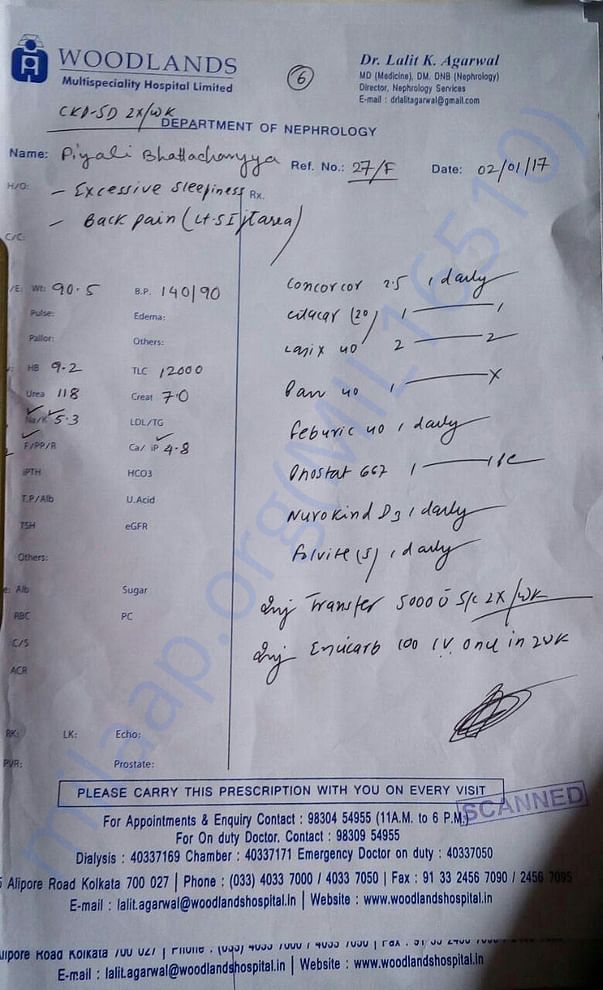 WOODLANDS
Multispeciality Hospital Limited
6
Dr. Lalit K. Agarwal
MD (Medicine), DM, DNB (Nephrology)
Director, Nephrology Services
E-mail : drlalitagarwal@gmail.com
CKD-5D 2X/WK
DEPARTMENT OF NEPHROLOGY
Name: Piyali Bhattacharyya Ref. No.: 27/F Date: 02/01/17
H/O: - Excessive Sleepiness Rx.
- Back pain (Lt-SI jt area)
C/C:
/E: Wt: 90.5 B.P. 140/90
Pulse: Edema:
Pallor: Others:
HB 9.2 TLC 12000
Urea 118 Creat 7.0
Na/K 5.3 LDL/TG
F/PP/R Ca/ iP 4.8
iPTH HCO3
T.P/Alb U.Acid
TSH eGFR
Others:
e: Alb Sugar
RBC PC
C/S
ACR
RK: LK: Echo:
PVR: Prostate:
Concorcor 2.5 1 daily
Cilacar (20) 1 — 1
Lasix 40 2 — 2
Pan 40 1 — X
Feburic 40 1 daily
Phostat 667 1 —
Nurokind D3 1 daily
Folvite (5) 1 daily
Inj Transfer 5000 U S/C 2X/WK
Inj 100 IV once in 2WK
PLEASE CARRY THIS PRESCRIPTION WITH YOU ON EVERY VISIT
SCANNED
For Appointments & Enquiry Contact : 98304 54955 (11A.M. to 6 P.M.)
For On duty Doctor. Contact : 98309 54955
Dialysis : 40337169 Chamber : 40337171 Emergency Doctor on duty : 40337050
5 Alipore Road Kolkata 700 027 | Phone : (033) 4033 7000 / 4033 7050 | Fax : 91 33 2456 7090 / 2456 7095
E-mail : lalit.agarwal@woodlandshospital.in | Website : www.woodlandshospital.in
Alipore Road Kolkata 700 027 | Phone : (033) 4033 7000 / 4033 7050 | Fax : 91 33 2456
E-mail : lalit.agarwal@woodlandshospital.in | Website : www.woodlandshospital.in
milaap.org(MIL16510)